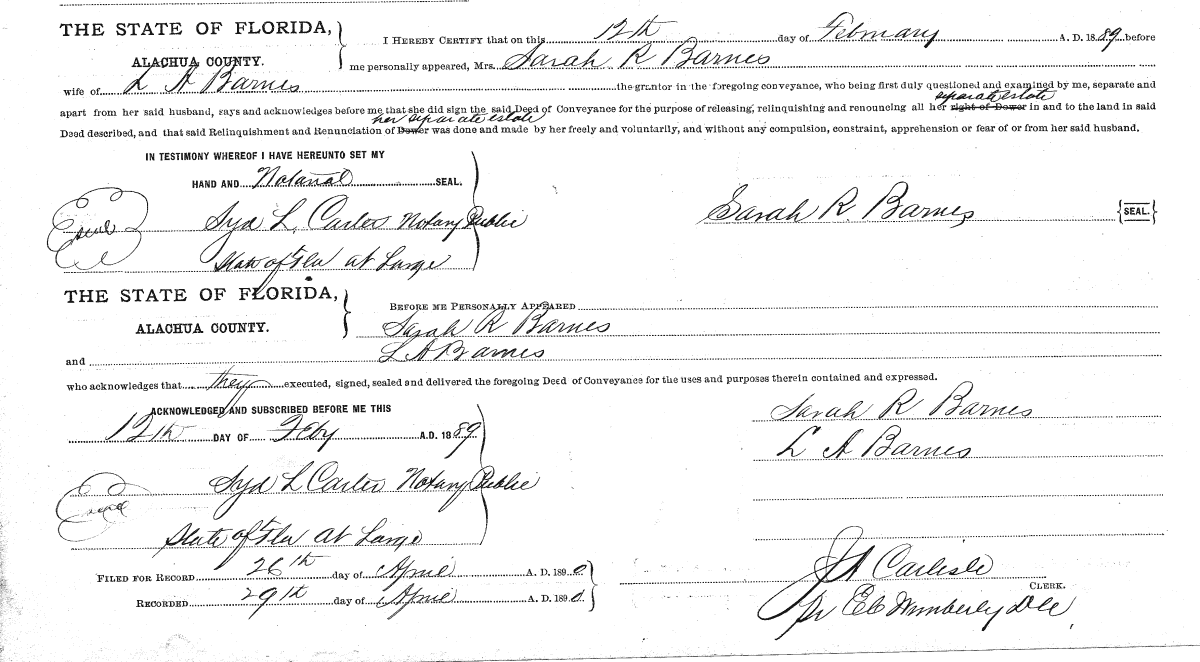 THE STATE OF FLORIDA,
ALACHUA COUNTY.
I HEREBY CERTIFY that on this 12th day of February A. D. 1889 before
me personally appeared, Mrs. Sarah R Barnes
wife of L A Barnes the grantor in the foregoing conveyance, who being first duly questioned and examined by me, separate and
separate estate
apart from her said husband, says and acknowledges before me that she did sign the said Deed of Conveyance for the purpose of releasing, relinquishing and renouncing all her right of Dower in and to the land in said
her separate estate
Deed described, and that said Relinquishment and Renunciation of Dower was done and made by her freely and voluntarily, and without any compulsion, constraint, apprehension or fear of or from her said husband.
IN TESTIMONY WHEREOF I HAVE HEREUNTO SET MY
HAND AND Notarial SEAL.
Seal
Syd L. Carter Notary Public
State of Fla at Large
Sarah R Barnes {SEAL.}
THE STATE OF FLORIDA,
ALACHUA COUNTY.
BEFORE ME PERSONALLY APPEARED
Sarah R Barnes
and L A Barnes
who acknowledges that they executed, signed, sealed and delivered the foregoing Deed of Conveyance for the uses and purposes therein contained and expressed.
ACKNOWLEDGED AND SUBSCRIBED BEFORE ME THIS
12th DAY OF Feby A.D. 1889
Seal
Syd L Carter Notary Public
State of Fla at Large
Sarah R Barnes
L A Barnes
FILED FOR RECORD 26th day of April A. D. 1890
RECORDED 29th day of April A. D. 1890
J A Carlisle
CLERK.
Pr E C Wimberly DC